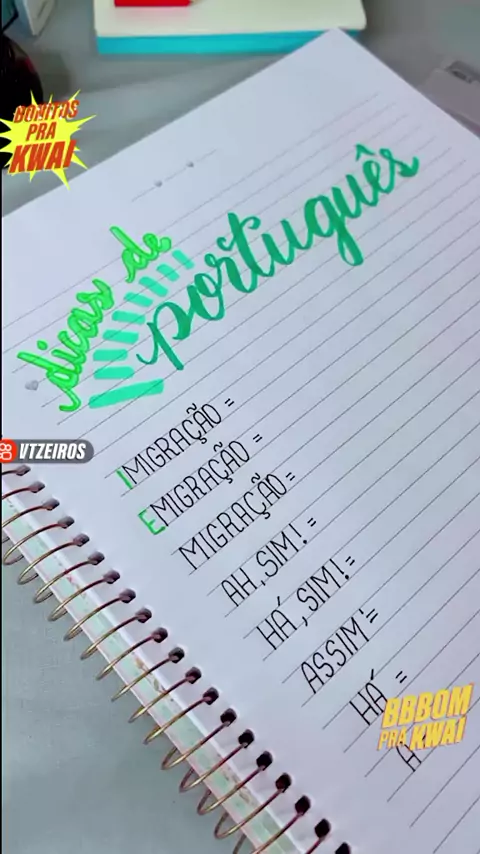 BONITOS
PRA
KWAI
dicas de
português
VTZEIROS
IMIGRAÇÃO =
EMIGRAÇÃO =
MIGRAÇÃO =
AH, SIM! =
HÁ, SIM! =
ASSIM =
HÁ =
A
BBBOM
PRA KWAI